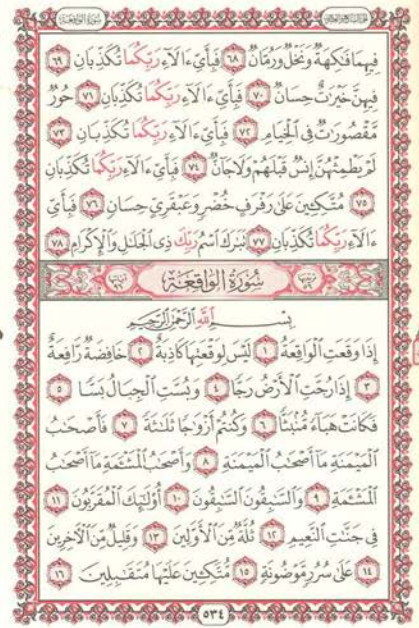 سورة الواقعة
الجزء السابع والعشرون
فِيهِمَا فَٰكِهَةٌ وَنَخْلٌ وَرُمَّانٌ ٦٨ فَبِأَيِّ ءَالَآءِ رَبِّكُمَا تُكَذِّبَانِ ٦٩
فِيهِنَّ خَيْرَٰتٌ حِسَانٌ ٧٠ فَبِأَيِّ ءَالَآءِ رَبِّكُمَا تُكَذِّبَانِ ٧١ حُورٌ
مَّقْصُورَٰتٌ فِي الْخِيَامِ ٧٢ فَبِأَيِّ ءَالَآءِ رَبِّكُمَا تُكَذِّبَانِ ٧٣
لَمْ يَطْمِثْهُنَّ إِنسٌ قَبْلَهُمْ وَلَا جَآنٌّ ٧٤ فَبِأَيِّ ءَالَآءِ رَبِّكُمَا تُكَذِّبَانِ
٧٥ مُتَّكِـِٔينَ عَلَىٰ رَفْرَفٍ خُضْرٍ وَعَبْقَرِيٍّ حِسَانٍ ٧٦ فَبِأَيِّ
ءَالَآءِ رَبِّكُمَا تُكَذِّبَانِ ٧٧ تَبَٰرَكَ اسْمُ رَبِّكَ ذِي الْجَلَٰلِ وَالْإِكْرَامِ ٧٨
سُورَةُ الْوَاقِعَةِ
بِسْمِ اللَّهِ الرَّحْمَٰنِ الرَّحِيمِ
إِذَا وَقَعَتِ الْوَاقِعَةُ ١ لَيْسَ لِوَقْعَتِهَا كَاذِبَةٌ ٢ خَافِضَةٌ رَّافِعَةٌ
٣ إِذَا رُجَّتِ الْأَرْضُ رَجًّا ٤ وَبُسَّتِ الْجِبَالُ بَسًّا ٥
فَكَانَتْ هَبَآءً مُّنۢبَثًّا ٦ وَكُنتُمْ أَزْوَٰجًا ثَلَٰثَةً ٧ فَأَصْحَٰبُ
الْمَيْمَنَةِ مَآ أَصْحَٰبُ الْمَيْمَنَةِ ٨ وَأَصْحَٰبُ الْمَشْـَٔمَةِ مَآ أَصْحَٰبُ
الْمَشْـَٔمَةِ ٩ وَالسَّٰبِقُونَ السَّٰبِقُونَ ١٠ أُو۟لَٰٓئِكَ الْمُقَرَّبُونَ ١١
فِي جَنَّٰتِ النَّعِيمِ ١٢ ثُلَّةٌ مِّنَ الْأَوَّلِينَ ١٣ وَقَلِيلٌ مِّنَ الْآخِرِينَ
١٤ عَلَىٰ سُرُرٍ مَّوْضُونَةٍ ١٥ مُّتَّكِـِٔينَ عَلَيْهَا مُتَقَٰبِلِينَ ١٦
٥٣٤